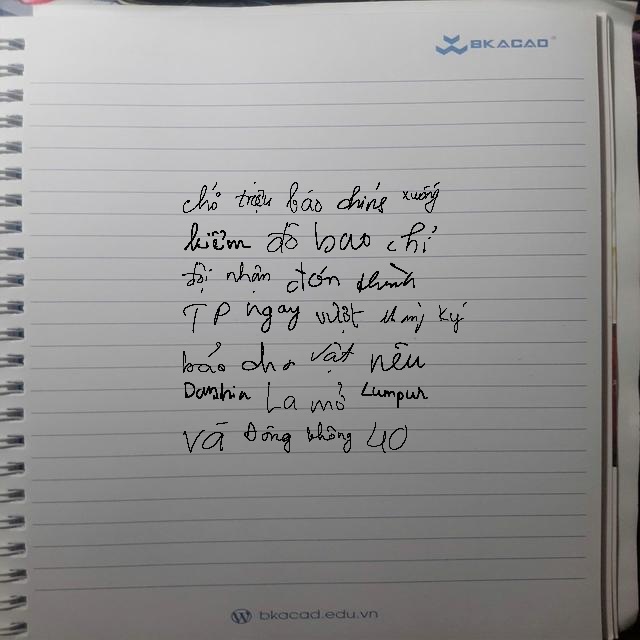 BKACAD
chở triệu báo chúng xuống
kiểm đô bao chỉ
đội nhận đơn thành
TP ngay vượt ký
báo cho vật nếu
La mở Lumpur
và Đông không 40
bkacad.edu.vn